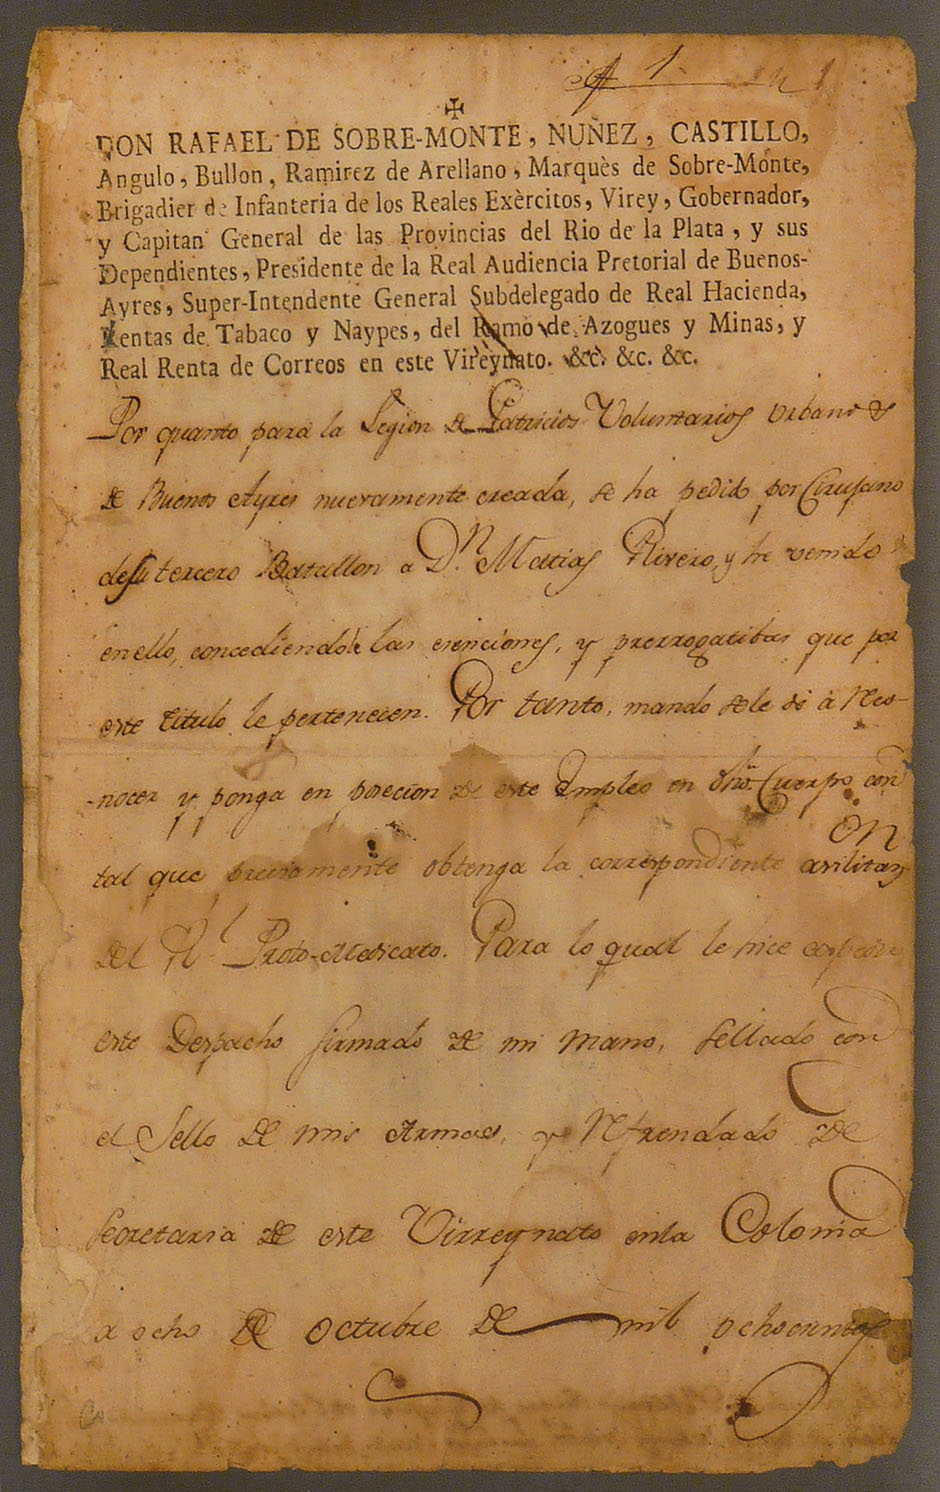 1
✠
DON RAFAEL DE SOBRE-MONTE, NUÑEZ, CASTILLO,
Angulo, Bullon, Ramirez de Arellano, Marquès de Sobre-Monte,
Brigadier de Infanteria de los Reales Exèrcitos, Virey, Gobernador,
y Capitan General de las Provincias del Rio de la Plata, y sus
Dependientes, Presidente de la Real Audiencia Pretorial de Buenos-
Ayres, Super-Intendente General Subdelegado de Real Hacienda,
Rentas de Tabaco y Naypes, del Ramo de Azogues y Minas, y
Real Renta de Correos en este Vireynato. &c. &c. &c.
Por quanto para la Legion de Patricios Voluntarios Urbanos
de Buenos Ayres nuevamente creada, se ha pedido por Cirujano
de su tercero Batallon a Dn. Matias Rivero, y he venido
en ello, concediendole las esenciones, y prerrogatibas que por
este titulo le pertenecen. Por tanto, mando sele dè à Reco-
-nocer y ponga en posecion de este Empleo en dho. Cuerpo con
tal que previamente obtenga la correspondiente avilitaon
del Rl. Proto-Medicato. Para lo qual le hice expedir
este Despacho firmado de mi mano, sellado con
el Sello de mis Armas, y Refrendado de
Secretaria de este Virreynato enla Colonia
a ocho de octubre de mil ochocientos